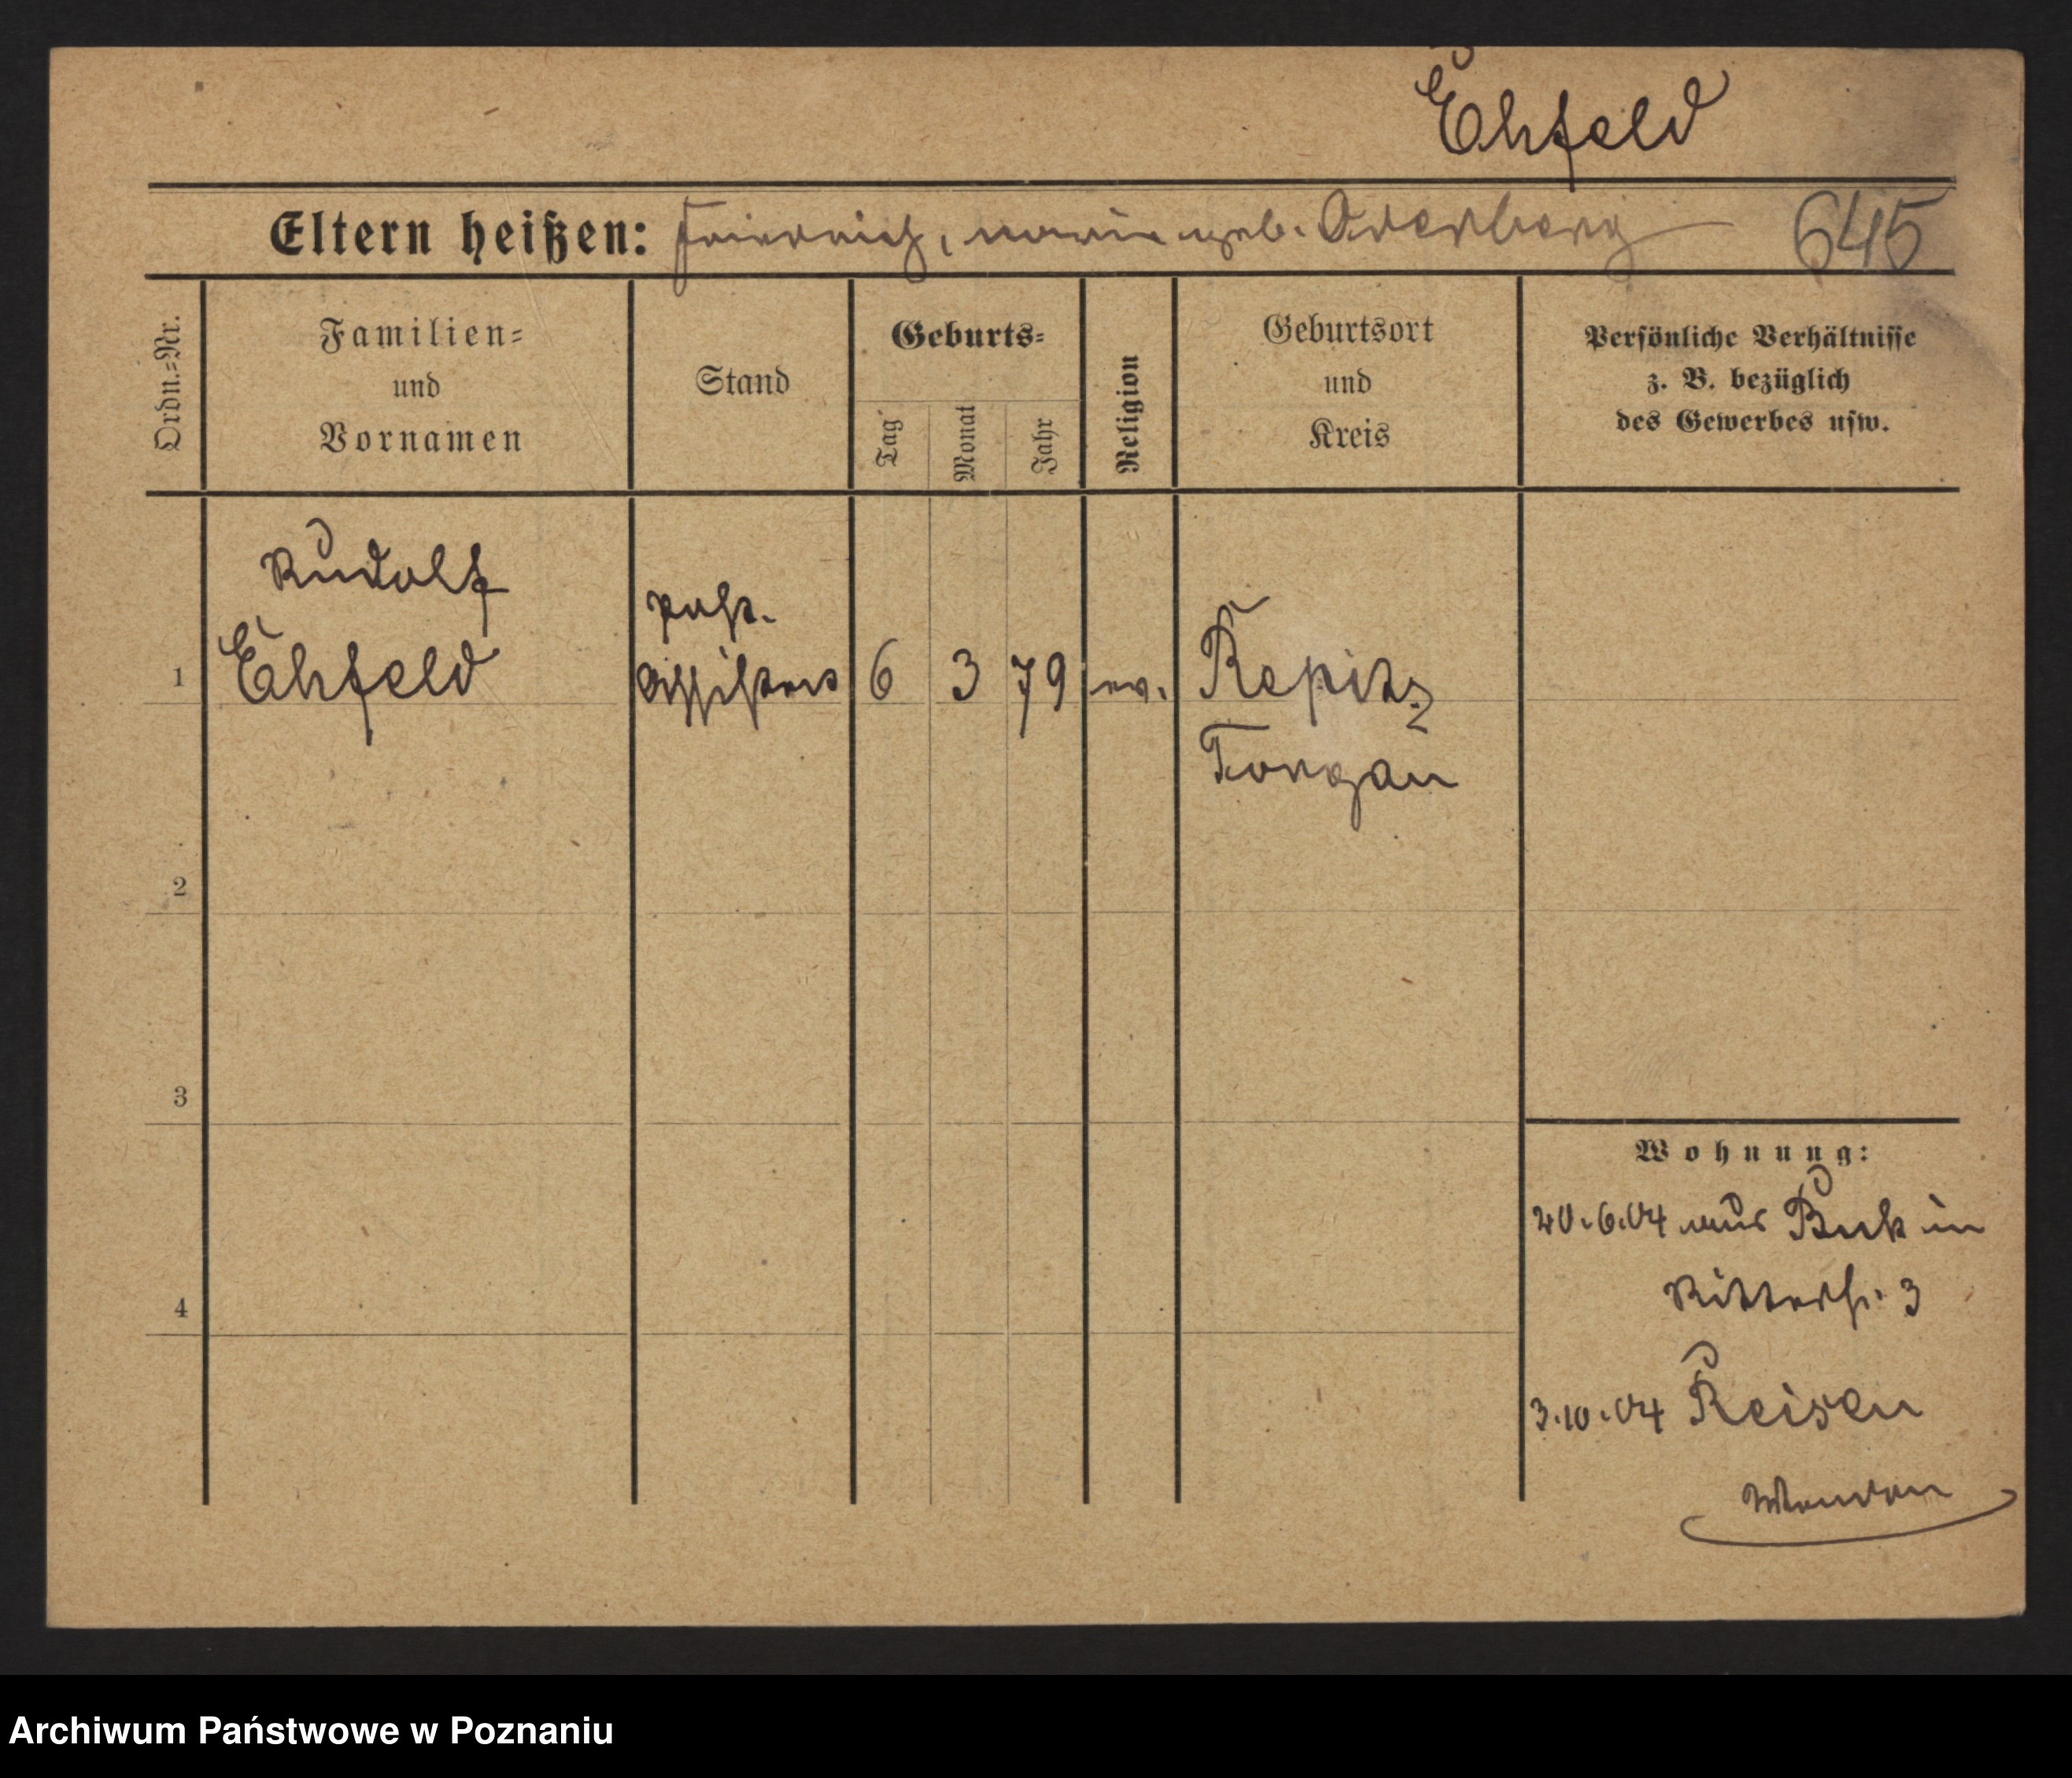 Ehfeld
Eltern heißen: Friedrich, Marie geb. Oderberg 645
Ordn.=Nr.
Familien=
und
Vornamen
Stand
Geburts=
Tag
Monat
Jahr
Religion
Geburtsort
und
Kreis
Persönliche Verhältnisse
z. B. bezüglich
des Gewerbes usw.
Rudolf
Post.
1 Ehfeld Assistent 6 3 79 ev. Repitz
Torgau
2
3
4
Wohnung:
20.6.04 aus Buk in
Ritterstr. 3
3.10.04 Reisen
Archiwum Państwowe w Poznaniu